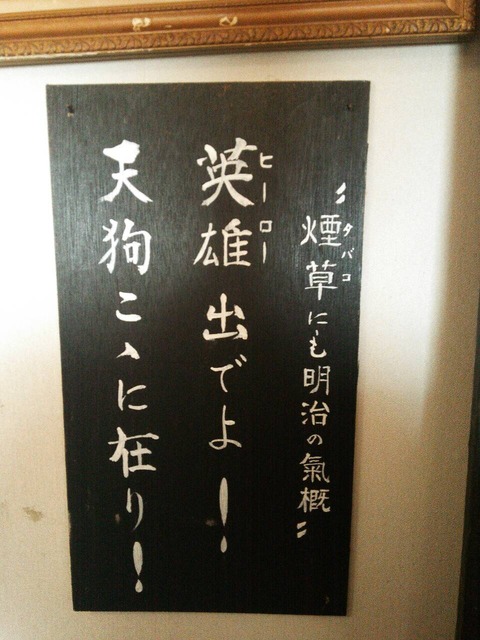 〝煙草にも明治の氣概〟
タバコ
英雄出でよ！
ヒーロー
天狗こゝに在り！